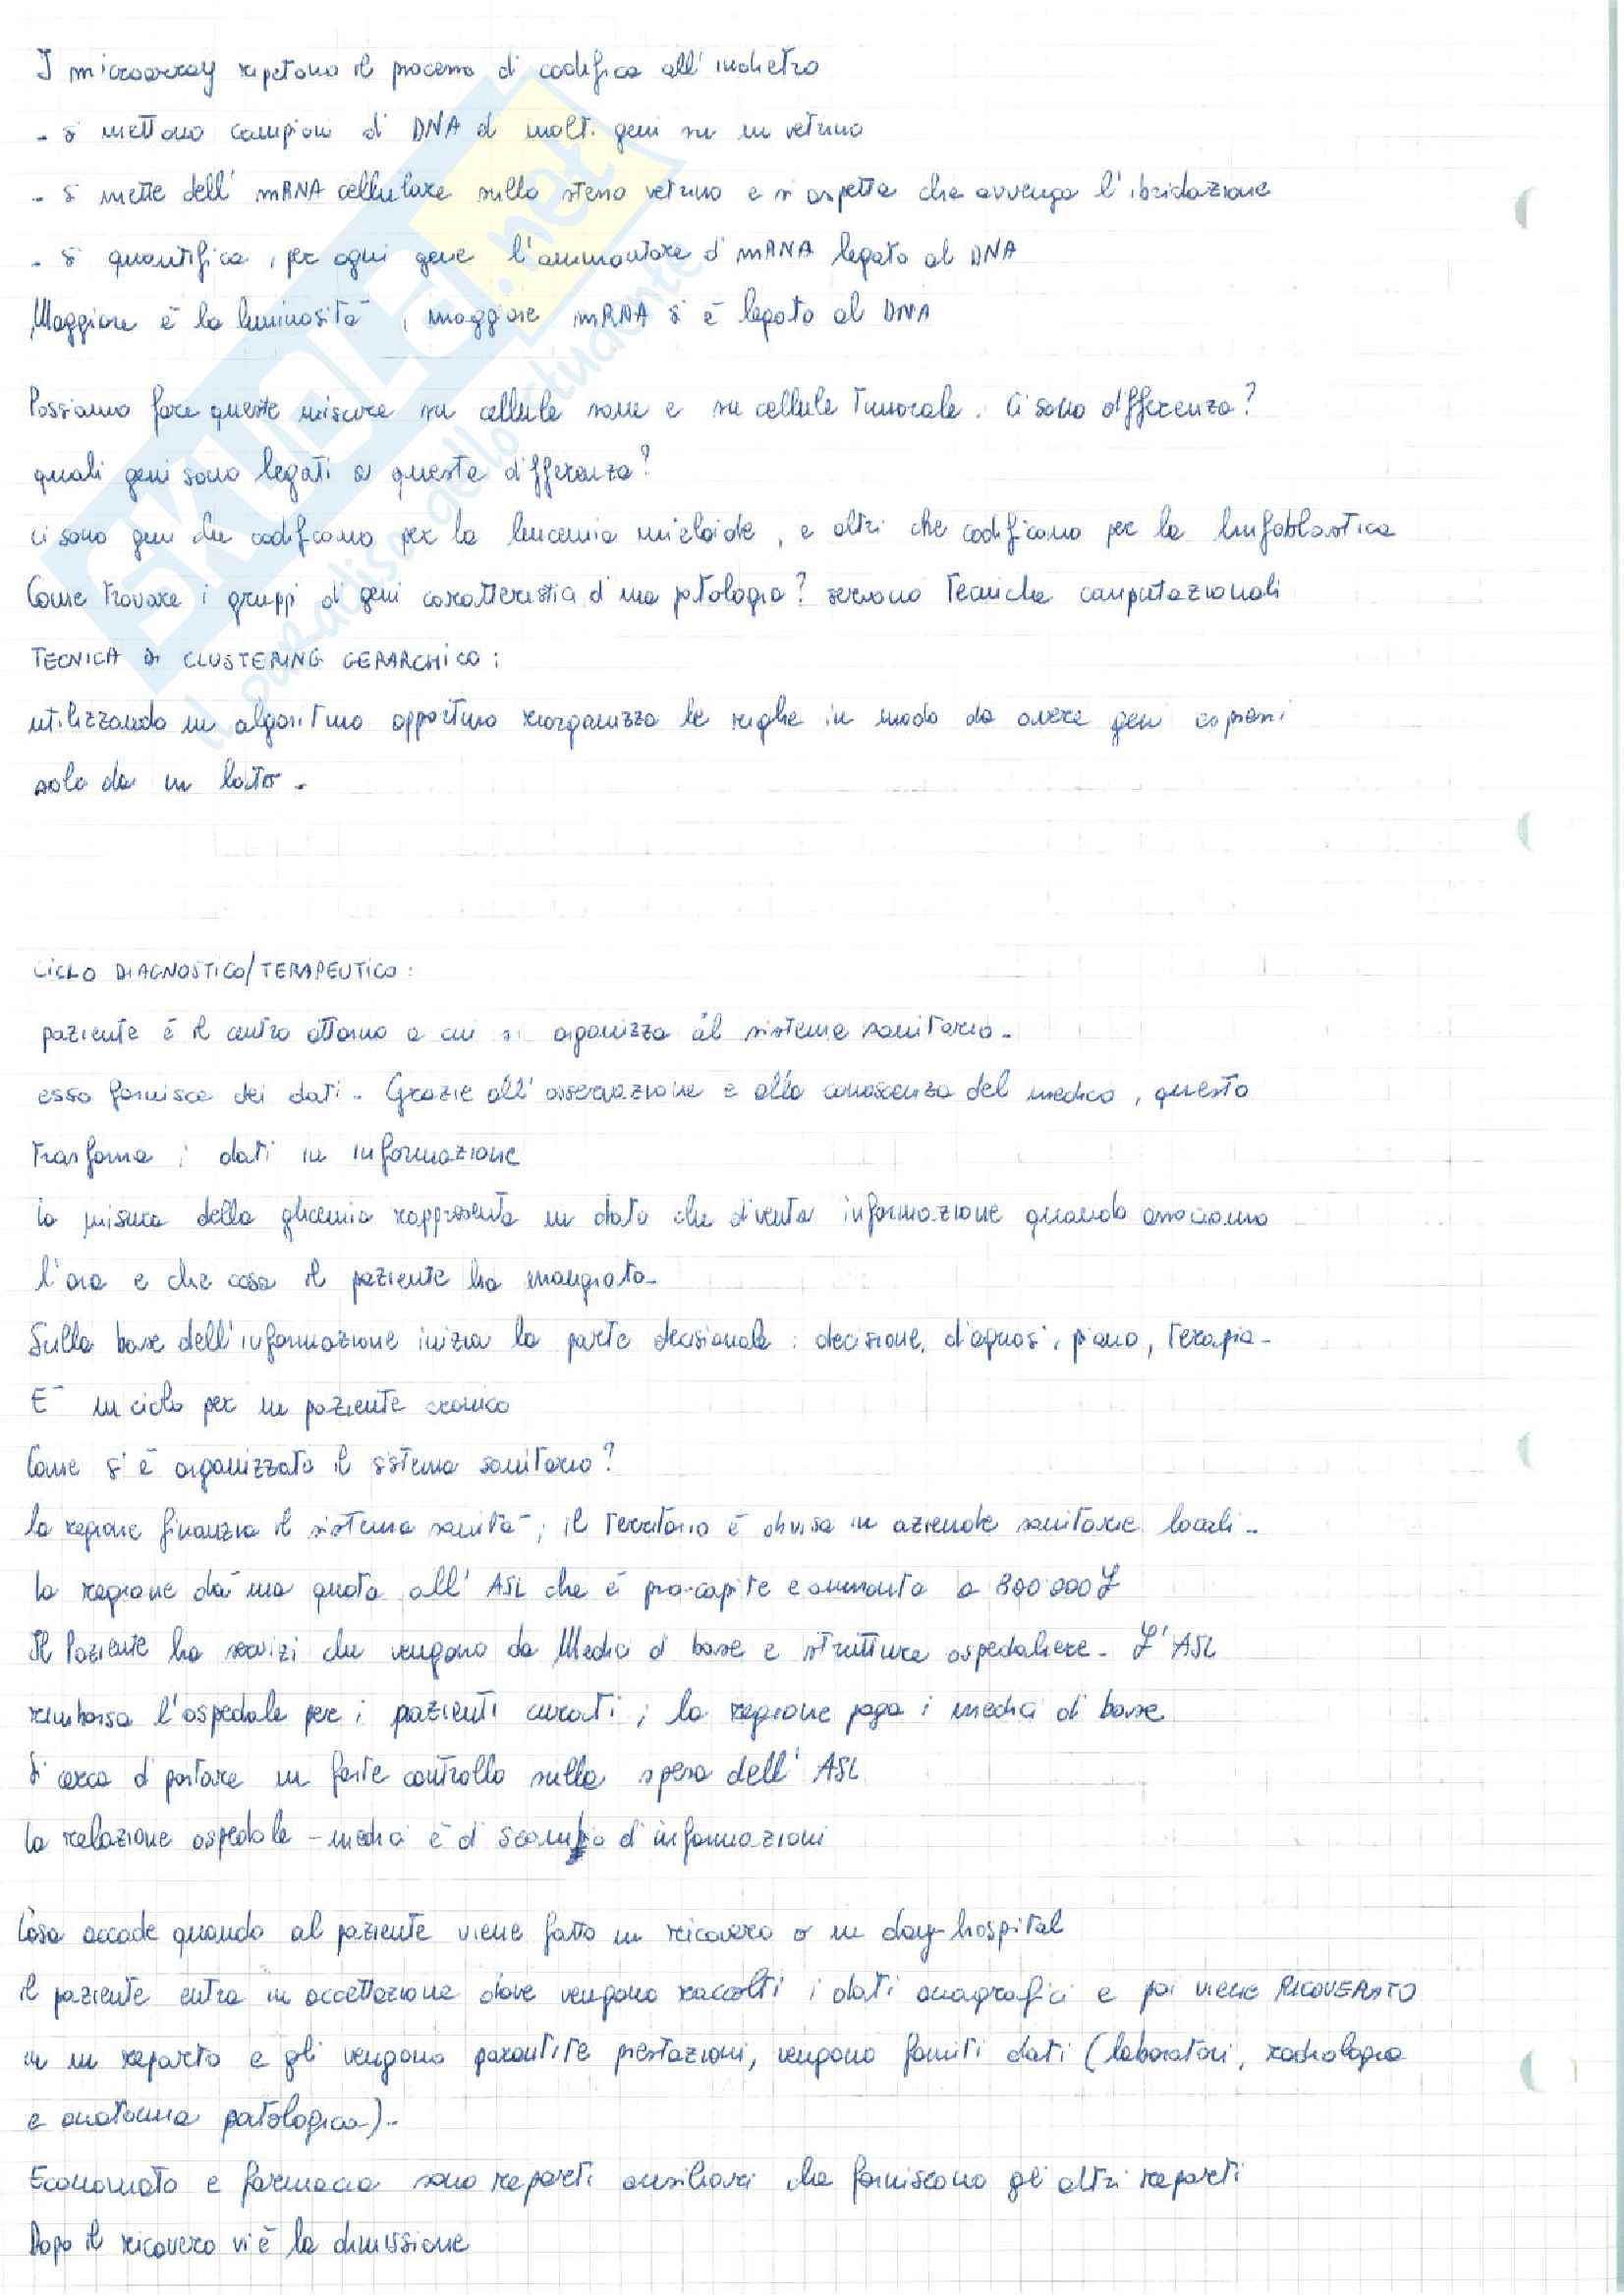 I microarray ripetono il processo di codifica all'indietro
- si mettono campioni di DNA di molti geni su un vetrino
- si mette dell'mRNA cellulare sullo stesso vetrino e si aspetta che avvenga l'ibridazione
- si quantifica, per ogni gene l'ammontare di mRNA legato al DNA
Maggiore è la luminosità, maggiore mRNA si è legato al DNA
Possiamo fare queste misure su cellule sane e su cellule tumorale. Ci sono differenza?
quali geni sono legati a questa differenza?
ci sono geni che codificano per la leucemia mieloide, e altri che codificano per la linfoblastica
Come trovare i gruppi di geni caratteristici di una patologia? servono tecniche computazionali
TECNICA DI CLUSTERING GERARCHICO:
utilizzando un algoritmo opportuno riorganizza le righe in modo da avere geni espressi
solo da un lato.
CICLO DIAGNOSTICO/TERAPEUTICO:
paziente è il centro attorno a cui si organizza il sistema sanitario.
esso fornisce dei dati. Grazie all'osservazione e alla conoscenza del medico, questo
trasforma i dati in informazione
la misura della glicemia rappresenta un dato che diventa informazione quando associamo
l'ora e che cosa il paziente ha mangiato.
Sulla base dell'informazione inizia la parte decisionale: decisione, diagnosi, piano, terapia.
E' un ciclo per un paziente cronico
Come si è organizzato il sistema sanitario?
la regione finanzia il sistema sanità; il territorio è divisa in aziende sanitarie locali.
la regione dà una quota all'ASL che è pro-capite e ammonta a 800'000 £
Il Paziente ha servizi che vengono da Medici di base e strutture ospedaliere. L'ASL
rimborsa l'ospedale per i pazienti curati; la regione paga i medici di base
Si cerca di portare un forte controllo sulla spesa dell'ASL
la relazione ospedale-medici è di scambio di informazioni
Cosa accade quando al paziente viene fatto un ricovero o un day-hospital
il paziente entra in accettazione dove vengono raccolti i dati anagrafici e poi viene RICOVERATO
in un reparto e gli vengono garantite prestazioni, vengono forniti dati (laboratori, radiologia
e anatomia patologica).
Economato e farmacia sono reparti ausiliari che forniscono gli altri reparti
Dopo il ricovero vi è la dimissione
SKUOLA.net
il paradiso dello studente